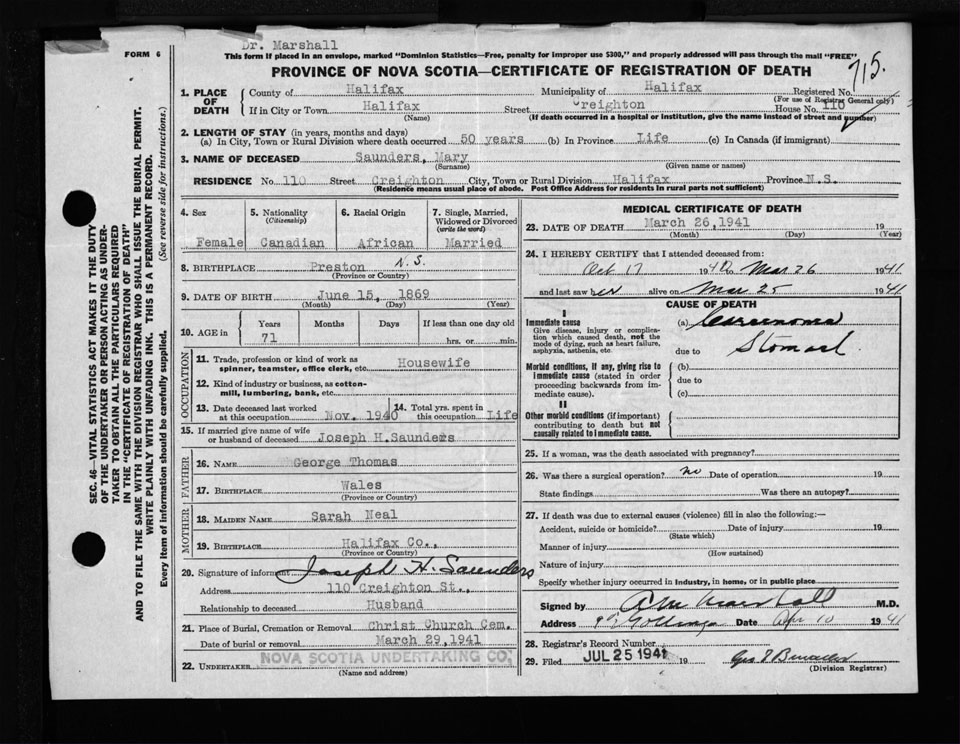 Dr. Marshall
FORM 6
This form if placed in an envelope, marked "Dominion Statistics—Free, penalty for improper use $300," and properly addressed will pass through the mail "FREE"
715.
PROVINCE OF NOVA SCOTIA—CERTIFICATE OF REGISTRATION OF DEATH
1. PLACE OF DEATH
County of Halifax Municipality of Halifax Registered No.
(For use of Registrar General only)
If in City or Town Halifax Street Creighton House No. 110
(Name) (If death occurred in a hospital or institution, give the name instead of street and number)
2. LENGTH OF STAY (in years, months and days)
(a) In City, Town or Rural Division where death occurred 50 years (b) In Province Life (c) In Canada (if immigrant)
3. NAME OF DECEASED Saunders, Mary
(Surname) (Given name or names)
RESIDENCE No. 110 Street Creighton City, Town or Rural Division Halifax Province N.S.
(Residence means usual place of abode. Post Office Address for residents in rural parts not sufficient)
4. Sex 5. Nationality (Citizenship) 6. Racial Origin 7. Single, Married, Widowed or Divorced (write the word)
Female Canadian African Married
8. BIRTHPLACE Preston N.S.
(Province or Country)
9. DATE OF BIRTH June 15, 1869
(Month) (Day) (Year)
10. AGE in Years Months Days If less than one day old
71 hrs. or min.
OCCUPATION
11. Trade, profession or kind of work as spinner, teamster, office clerk, etc. Housewife
12. Kind of industry or business, as cotton-mill, lumbering, bank, etc.
13. Date deceased last worked at this occupation Nov. 1940 14. Total yrs. spent in this occupation Life
15. If married give name of wife or husband of deceased Joseph H.Saunders
FATHER
16. NAME George Thomas
17. BIRTHPLACE Wales
(Province or Country)
MOTHER
18. MAIDEN NAME Sarah Neal
19. BIRTHPLACE Halifax Co.,
(Province or Country)
20. Signature of informant Joseph H. Saunders
Address 110 Creighton St.,
Relationship to deceased Husband
21. Place of Burial, Cremation or Removal Christ Church Cem.
Date of burial or removal March 29,1941
22. UNDERTAKER NOVA SCOTIA UNDERTAKING CO.
(Name and address)
MEDICAL CERTIFICATE OF DEATH
23. DATE OF DEATH March 26,1941 19
(Month) (Day) (Year)
24. I HEREBY CERTIFY that I attended deceased from:
Oct 17 1940 to Mar 26 1941
and last saw her alive on Mar 25 1941
CAUSE OF DEATH
I
Immediate cause (a) Carcinoma
Give disease, injury or complication which caused death, not the mode of dying, such as heart failure, asphyxia, asthenia, etc.
due to Stomach
Morbid conditions, if any, giving rise to immediate cause (stated in order proceeding backwards from immediate cause).
(b)
due to
(c)
II
Other morbid conditions (if important) contributing to death but not causally related to immediate cause.
25. If a woman, was the death associated with pregnancy?
26. Was there a surgical operation? no Date of operation 19
State findings Was there an autopsy?
27. If death was due to external causes (violence) fill in also the following:—
Accident, suicide or homicide? Date of injury 19
(State which)
Manner of injury
(How sustained)
Nature of injury
Specify whether injury occurred in industry, in home, or in public place
Signed by A M Marshall M.D.
Address Gottingen Date Apr 10 1941
28. Registrar's Record Number
29. Filed JUL 25 1941 19
(Division Registrar)
SEC. 46—VITAL STATISTICS ACT MAKES IT THE DUTY
OF THE UNDERTAKER OR PERSON ACTING AS UNDER-
TAKER TO OBTAIN ALL THE PARTICULARS REQUIRED
IN THE "CERTIFICATE OF REGISTRATION OF DEATH"
AND TO FILE THE SAME WITH THE DIVISION REGISTRAR WHO SHALL ISSUE THE BURIAL PERMIT.
WRITE PLAINLY WITH UNFADING INK. THIS IS A PERMANENT RECORD.
Every item of information should be carefully supplied. (See reverse side for instructions.)